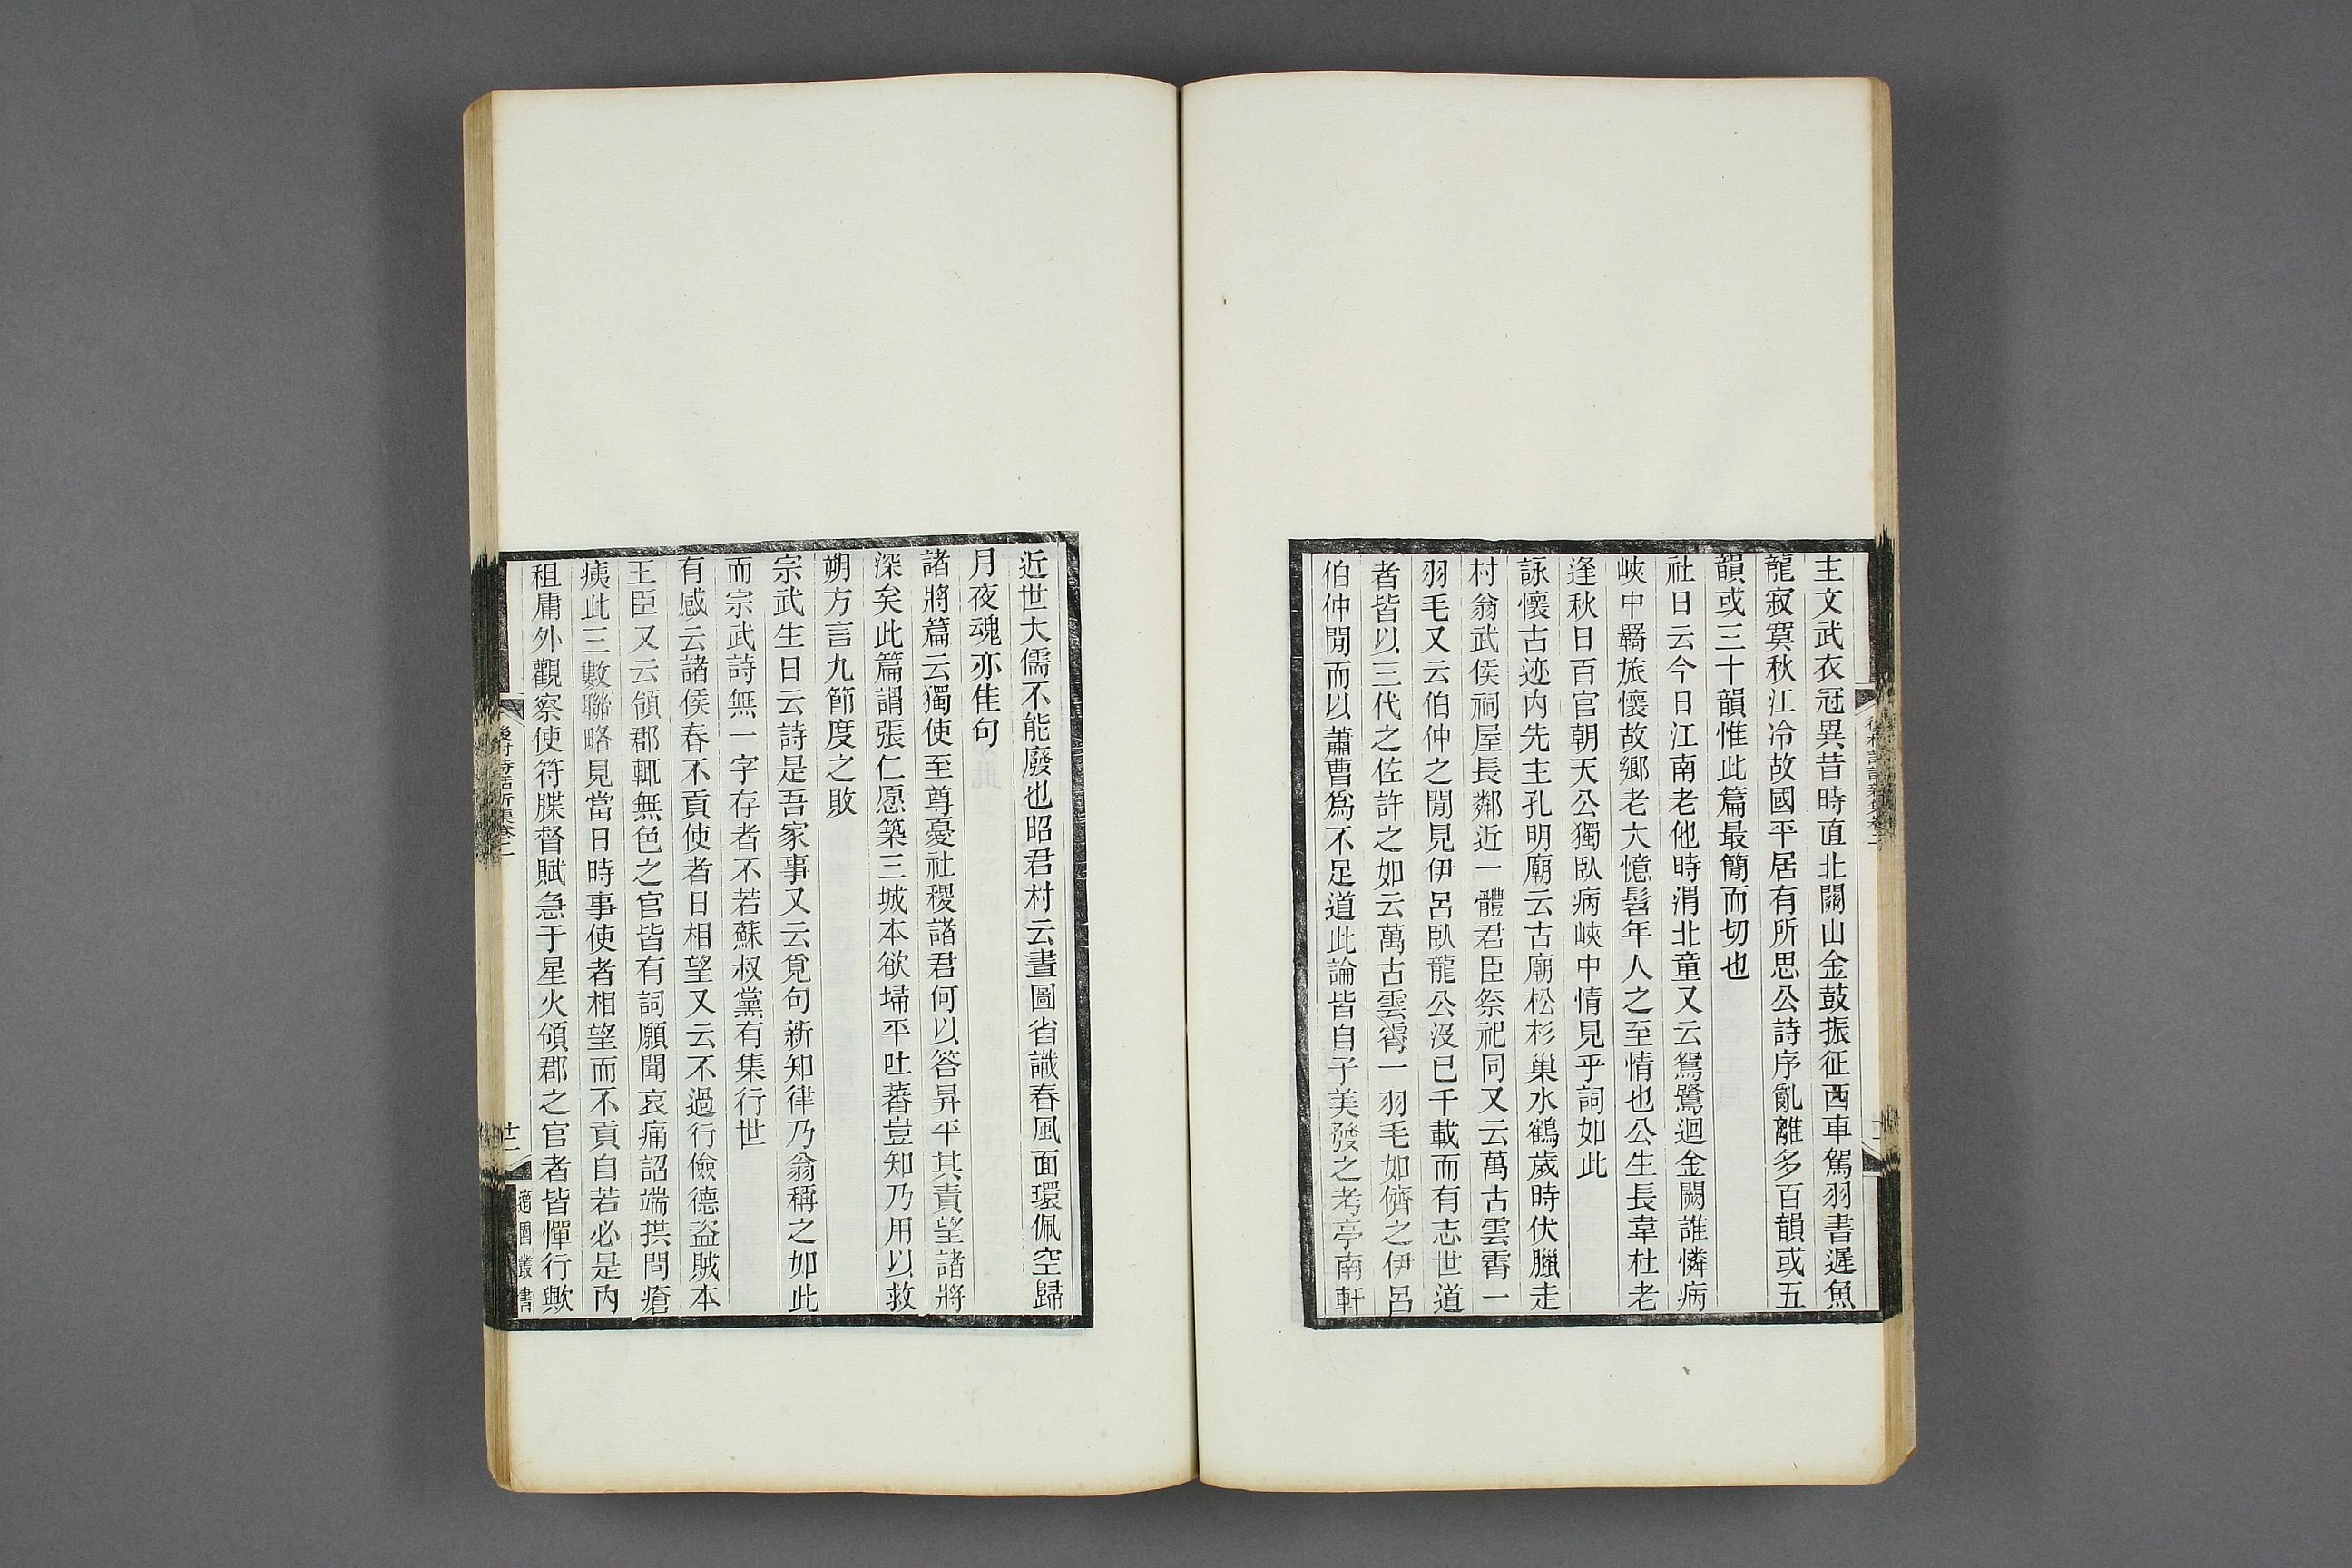 主文武衣冠異昔時直北關山金鼓振征西車駕羽書遲魚
龍寂寞秋江冷故國平居有所思公詩序亂離多百韻或五
韻或三十韻惟此篇最簡而切也
社日云今日江南老他時渭北童又云鴛鷺迴金闕誰憐病
峽中羇旅懷故鄉老大憶髫年人之至情也公生長韋杜老
逢秋日百官朝天公獨臥病峽中情見乎詞如此
詠懷古迹內先主孔明廟云古廟松杉巢水鶴歲時伏臘走
村翁武侯祠屋長鄰近一體君臣祭祀同又云萬古雲霄一
羽毛又云伯仲之閒見伊呂臥龍公沒已千載而有志世道
者皆以三代之佐許之如云萬古雲霄一羽毛如儕之伊呂
伯仲閒而以蕭曹爲不足道此論皆自子美發之考亭南軒
近世大儒不能廢也昭君村云畫圖省識春風面環佩空歸
月夜魂亦佳句
諸將篇云獨使至尊憂社稷諸君何以答昇平其責望諸將
深矣此篇謂張仁愿築三城本欲埽平吐蕃豈知乃用以救
朔方言九節度之敗
宗武生日云詩是吾家事又云覓句新知律乃翁稱之如此
而宗武詩無一字存者不若蘇叔黨有集行世
有感云諸侯春不貢使者日相望又云不過行儉德盜賊本
王臣又云領郡輒無色之官皆有詞願聞哀痛詔端拱問瘡
痍此三數聯略見當日時事使者相望而不貢自若必是內
租庸外觀察使符牒督賦急于星火領郡之官者皆憚行歟
後村詩話新集卷二
十二
適園叢書